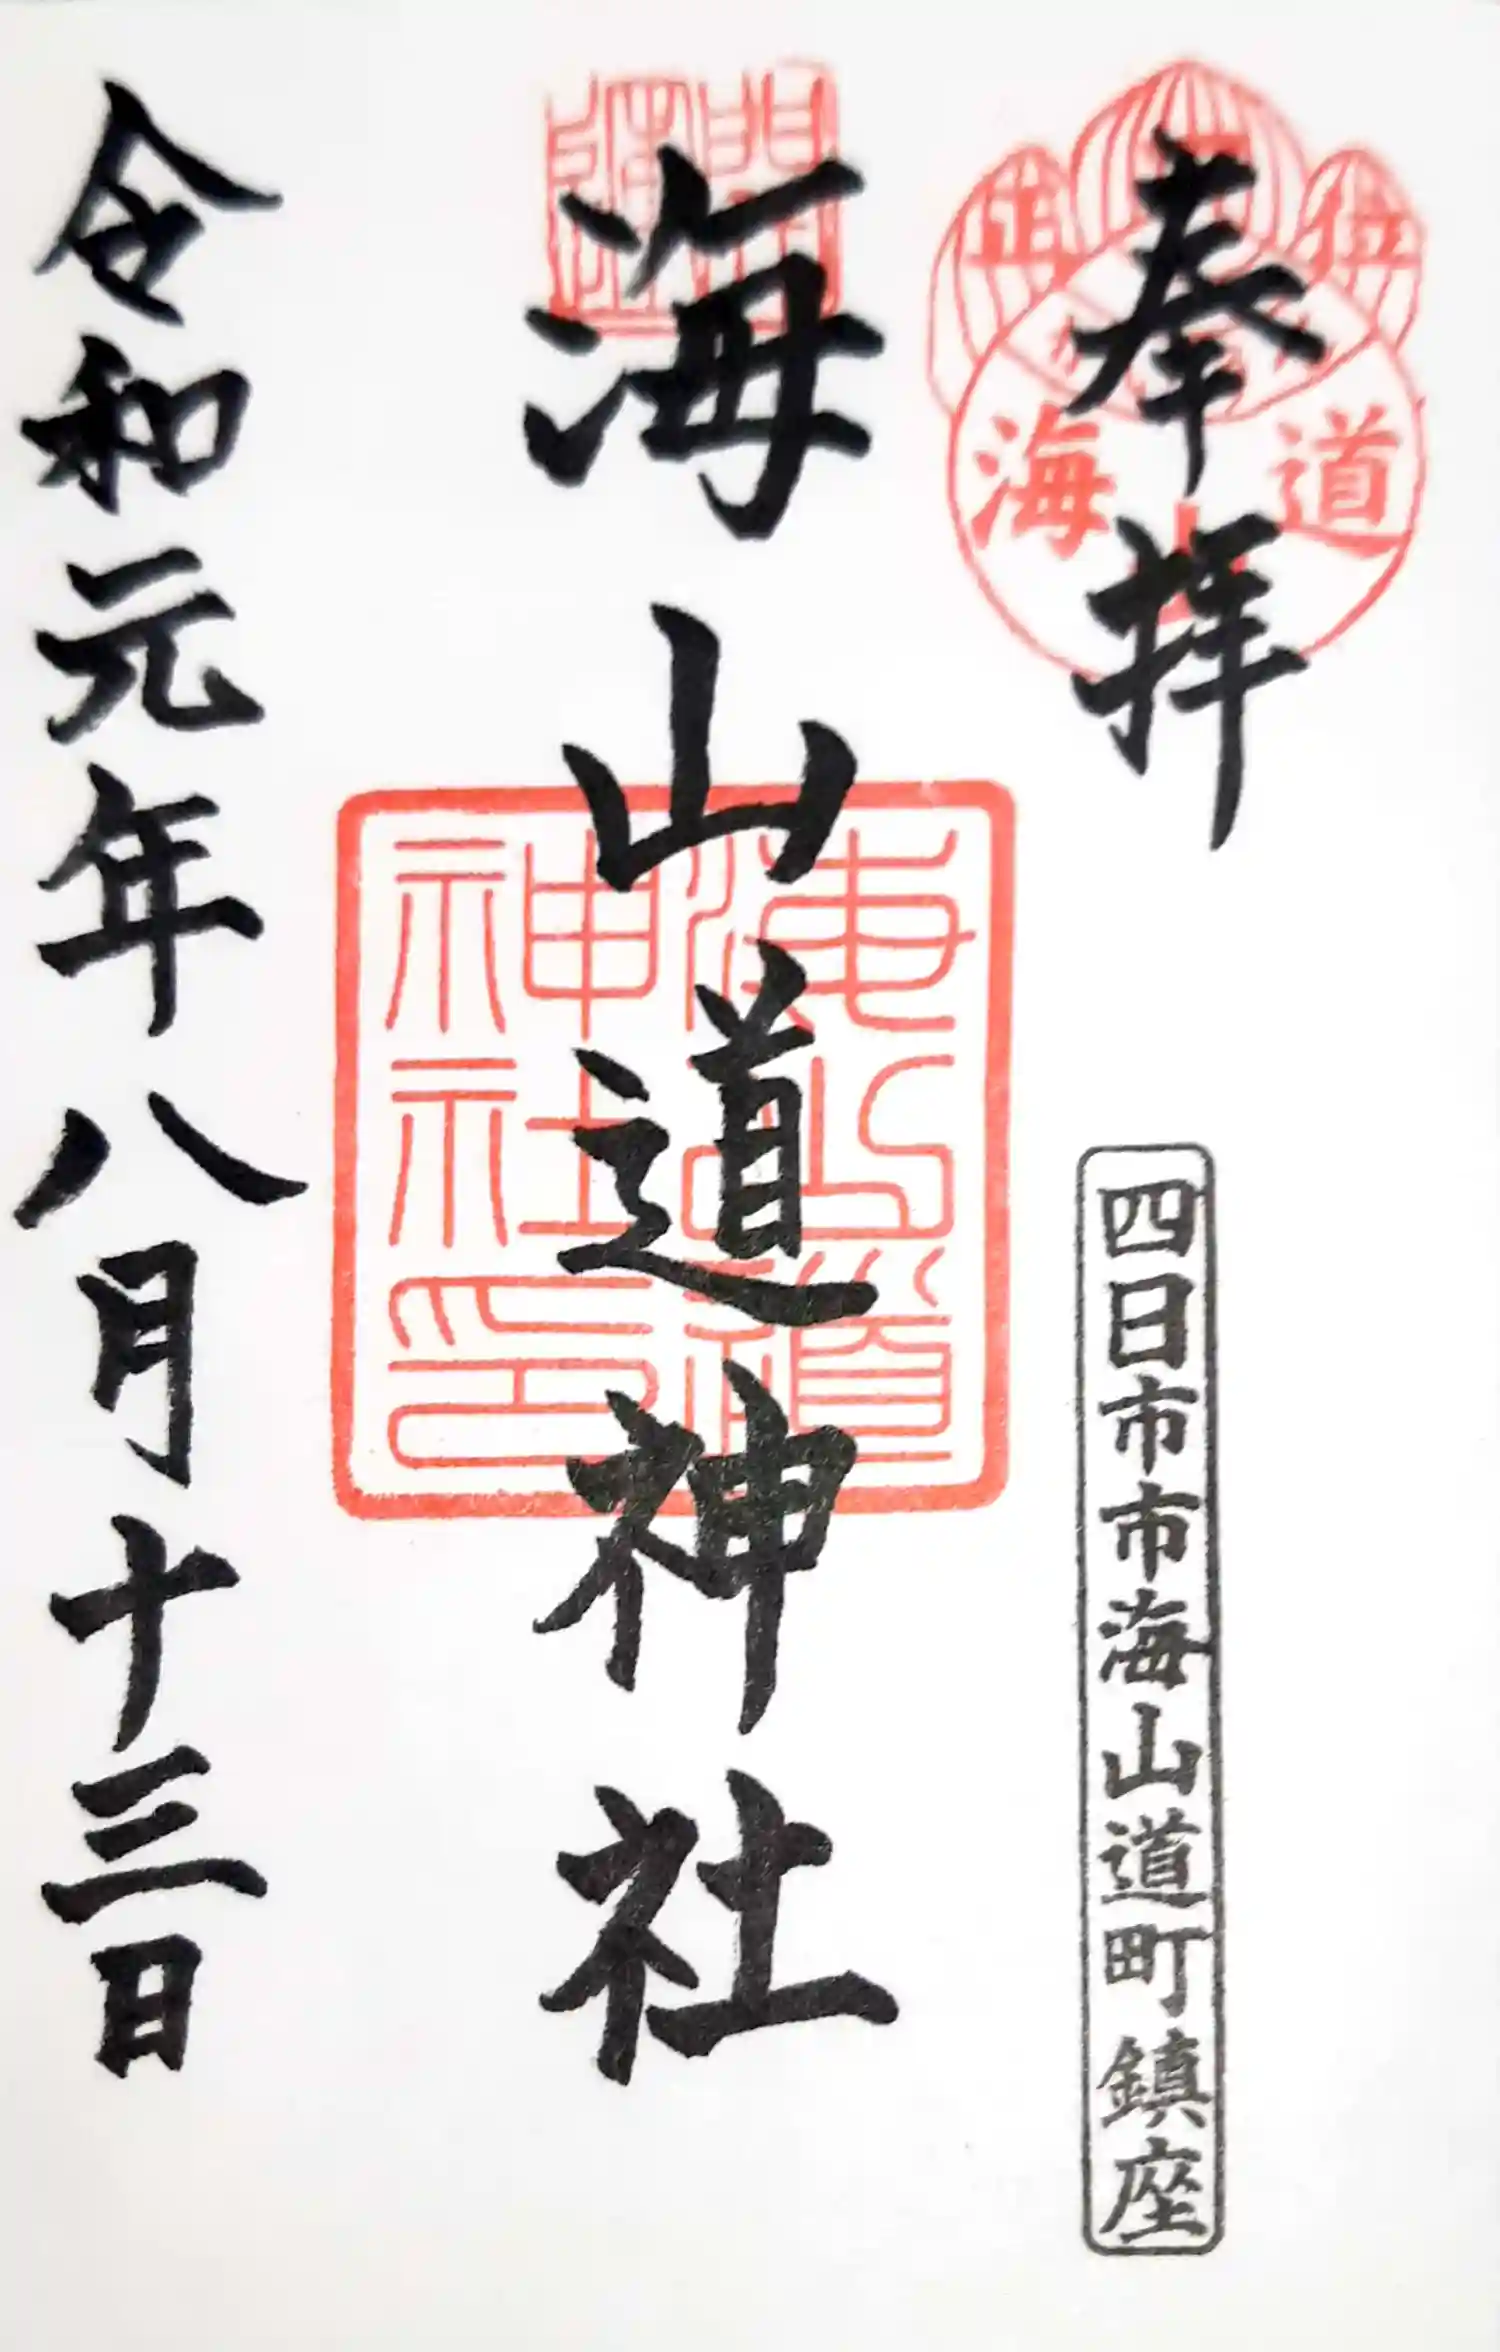 奉拝
正位
海山道
四日市市海山道町鎮座
海山道神社
海山道神社印
令和元年八月十三日